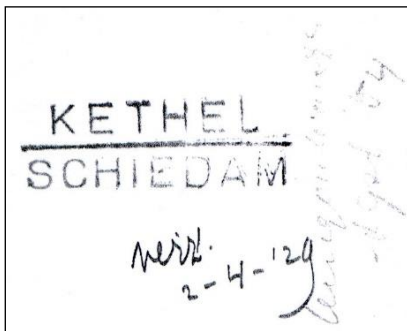 KETHEL
SCHIEDAM
verz.
2-4-'29